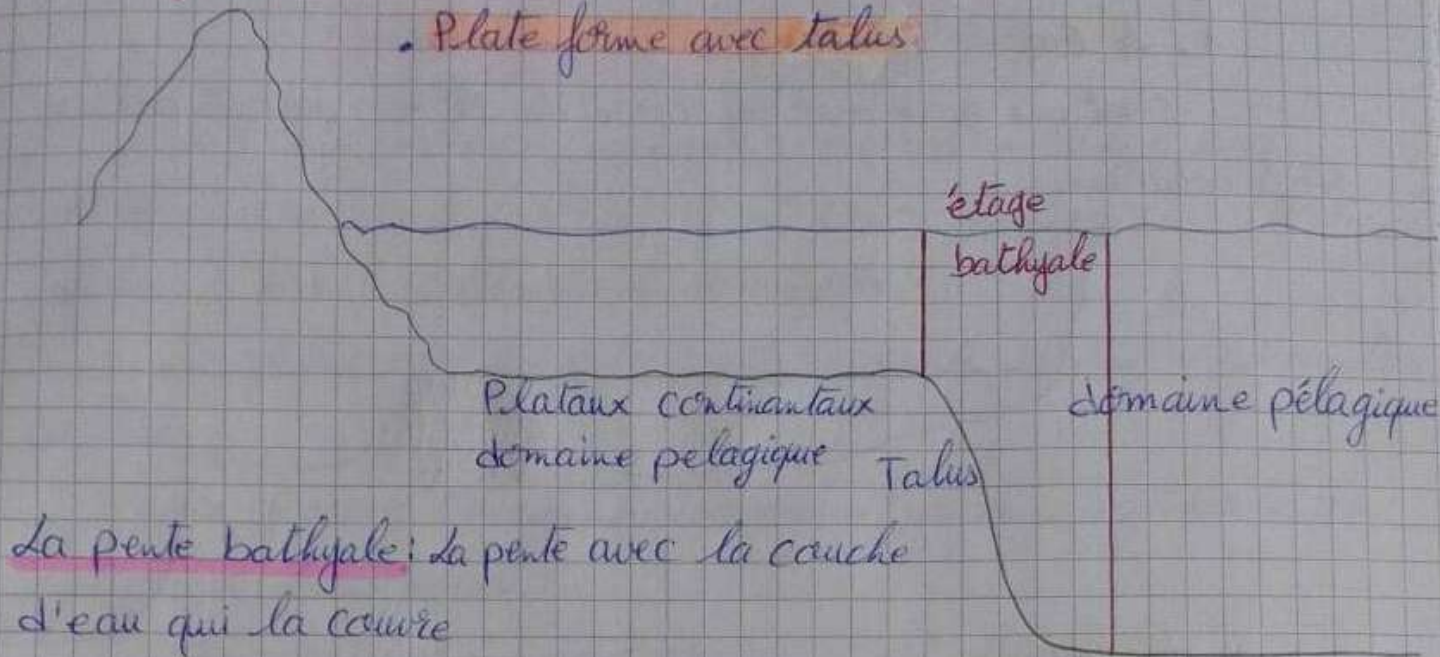 . Plate forme avec talus
étage
bathyale
Plataux continantaux
domaine pélagique
domaine pelagique
Talus
La pente bathyale : La pente avec la couche
d'eau qui la couvre